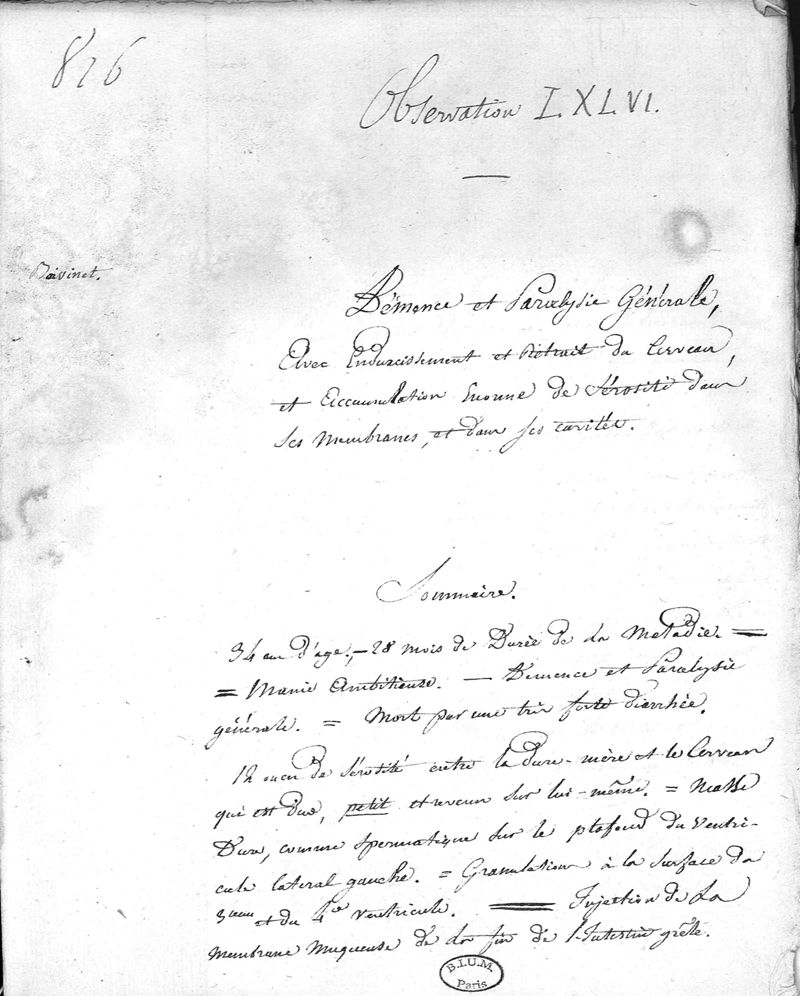 826
Observation LXLVI.
Boivinet.
Démence et Paralysie Générale,
Avec Endurcissement et Retrait du Cerveau,
et Accumulation Enorme de Sérosité dans
ses Membranes, et dans ses cavités.
Sommaire.
34 ans d'age, - 28 mois de Durée de la Maladie. =
= Manie Ambitieuse. - Démence et Paralysie
générale. = Mort par une très forte diarrhée.
12 onces de Sérosité entre la dure-mère et le Cerveau
qui est Dur, petit et revenu sur lui-même. = Matière
Dure, comme Spermatique sur le plafond du Ventri-
cule lateral gauche. = Granulation à la surface du
3eme et du 4e ventricule. = Injection de La
membrane muqueuse de la fin de l'Intestin grêle.
B.I.U.M.
Paris